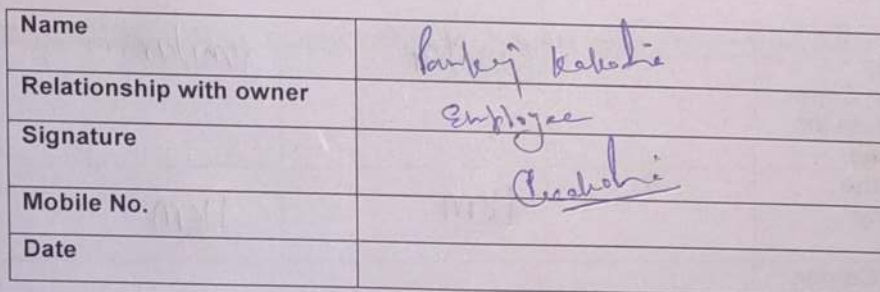 Name Pankaj Kakotie
Relationship with owner Employee
Signature
Mobile No.
Date